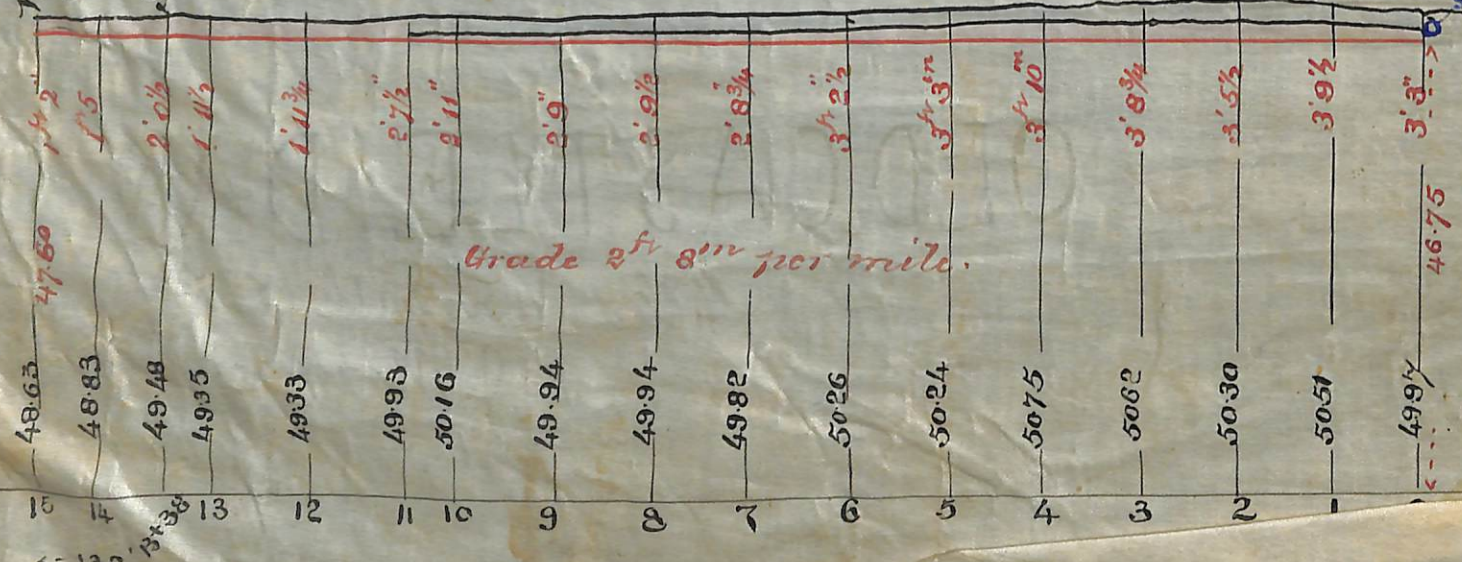 1 ft 2"
1'5
2'0½
1'11½
1'11¾
2'7½"
2'11"
2'9"
2'9½
2'8¾
3 ft 2½"
3 ft 3 in
3 ft 10 in
3'8¾
3'5½
3'9½
3'3"
47.60
46.75
Grade 2 ft 8 in per mile.
48.63
48.83
49.48
49.35
49.33
49.93
50.16
49.94
49.94
49.82
50.26
50.24
50.75
50.62
50.30
50.51
49.97
15
14
13+38
13
12
11
10
9
8
7
6
5
4
3
2
1